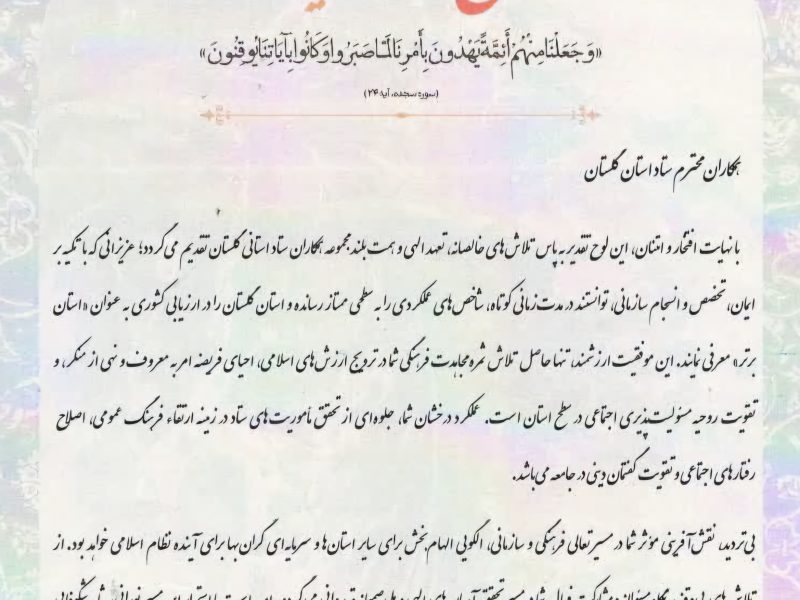 «وَجَعَلْنَا مِنْهُمْ أَئِمَّةً يَهْدُونَ بِأَمْرِنَا لَمَّا صَبَرُوا وَكَانُوا بِآيَاتِنَا يُوقِنُونَ»
(سوره سجده، آیه ۲۴)
همکاران محترم ستاد استان گلستان
با نهایت افتخار و امتنان، این لوح تقدیر به پاس تلاش‌های خالصانه، تعهد الهی و همت بلند مجموعه همکاران ستاد استانی گلستان تقدیم می‌گردد؛ عزیزانی که با تکیه بر
ایمان، تخصص و انسجام سازمانی، توانستند در مدت زمانی کوتاه، شاخص‌های عملکردی را به سطحی ممتاز رسانده و استان گلستان را در ارزیابی کشوری به عنوان «استان
برتر» معرفی نمایند. این موفقیت ارزشمند، تنها حاصل تلاش ثمره مجاهدت فرهنگی شما در ترویج ارزش‌های اسلامی، احیای فریضه امر به معروف و نهی از منکر، و
تقویت روحیه مسئولیت‌پذیری اجتماعی در سطح استان است. عملکرد درخشان شما، جلوه‌ای از تحقق مأموریت‌های ستاد در زمینه ارتقاء فرهنگ عمومی، اصلاح
رفتارهای اجتماعی و تقویت گفتمان دینی در جامعه می‌باشد.
بی‌تردید، نقش‌آفرینی مؤثر شما در مسیر تعالی فرهنگی و سازمانی، الگویی الهام‌بخش برای سایر استان‌ها و سرمایه‌ای گران‌بها برای آینده نظام اسلامی خواهد بود. از